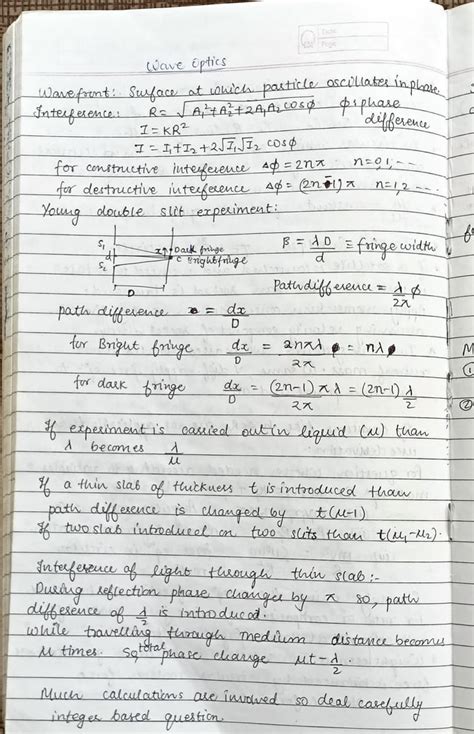 Date
Page
Wave Optics
Wavefront: Surface at which particle oscillates inphase
Interference: R = √A₁²+A₂²+2A₁A₂cosϕ ϕ is phase difference
I = KR²
I = I₁+I₂+2√I₁√I₂ cosϕ
for constructive interference Δϕ = 2nπ n=0,1,--
for destructive interference Δϕ = (2n-1)π n=1,2 --.
Young double slit experiment:
S₁
d
S₂
x
Dark fringe
C Bright fringe
D
β = λD/d ≡ fringe width
Path difference = λ/2π ϕ
path difference = dx/D
for Bright fringe dx/D = 2nπλ/2π = nλ
for dark fringe dx/D = (2n-1)πλ/2π = (2n-1)λ/2
If experiment is carried out in liquid (μ) than
λ becomes λ/μ
If a thin slab of thickness t is introduced than
path difference is changed by t(μ-1)
If two slab introduced on two slits than t(μ₁-μ₂).
Interference of light through thin slab:-
During reflection phase changes by π so, path
difference of λ/2 is introduced.
While travelling through medium distance becomes
μ times. So, total phase change μt - λ/2.
Much calculations are involved so deal carefully
integer based question.
M
①
②